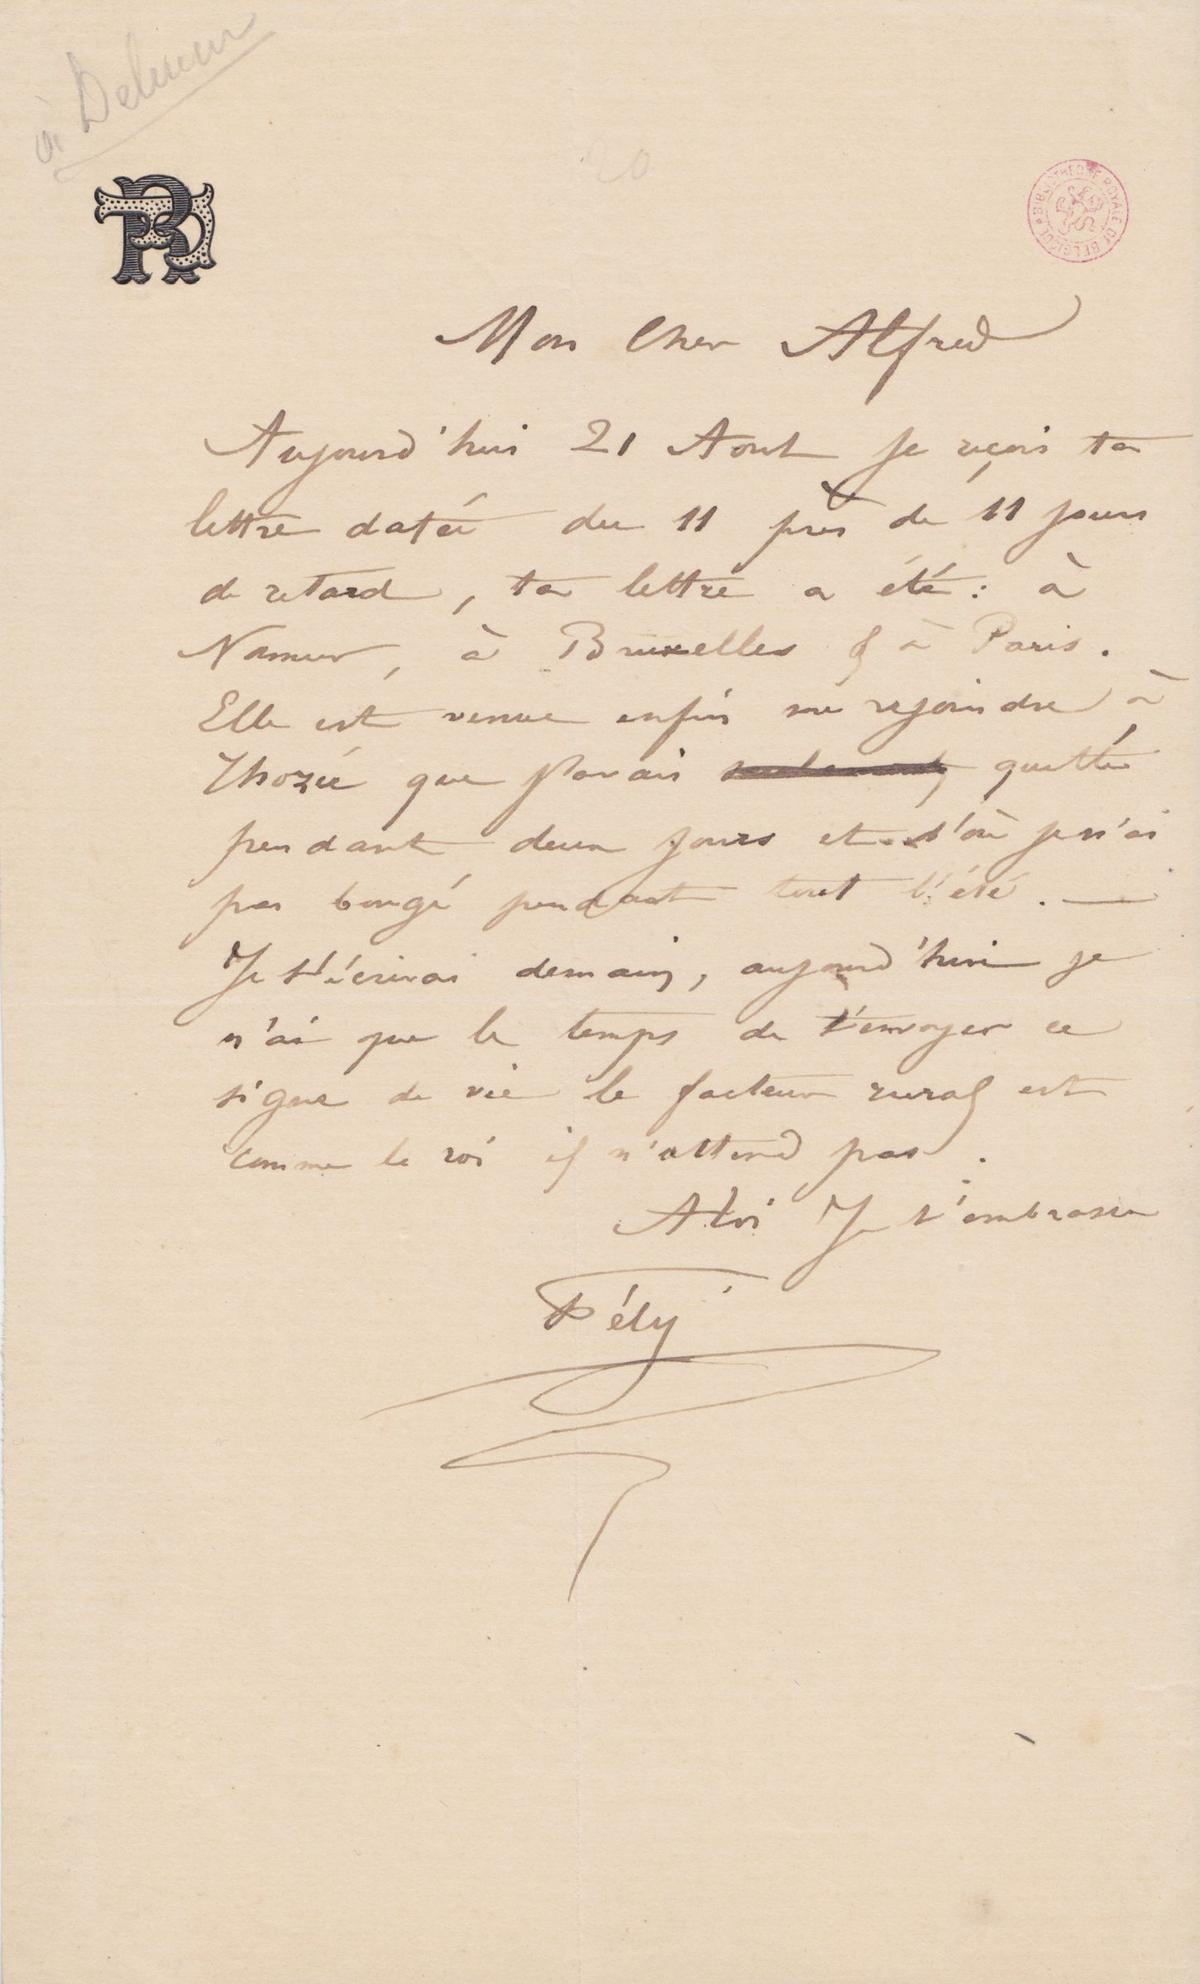 à Delvau
20
BIBLIOTHÈQUE ROYALE DE BELGIQUE
Mon Cher Alfred
Aujourd'hui 21 Aout je reçois ta
lettre datée du 11 près de 11 jours
de retard, ta lettre a été: à
Namur, à Bruxelles & à Paris.
Elle est venue enfin me rejoindre à
Thozée que j'avais quittée
pendant deux jours et d'où je n'ai
pas bougé pendant tout l'été. —
Je t'écrirai demain, aujourd'hui je
n'ai que le temps de t'envoyer ce
signe de vie le facteur rural est
comme le roi il n'attend pas.
A toi Je t'embrasse
Fély